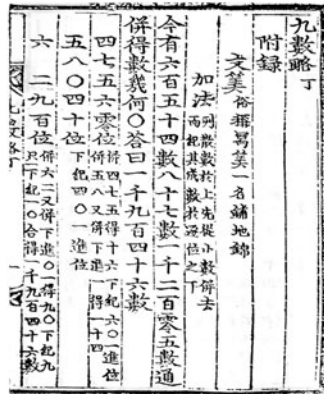 九數略丁
附録
文筭俗稱寫筭一名鋪地錦
加法列散數於上先從小數併去
而紀其成數於逐位之下
今有六百五十四數八十七數一千二百零五數通
併得數幾何〇答曰一千九百四十六數
四七五六零位併四七五得十六下紀六〇一進位
併五八又併下進一得一十四
五八〇四十位下紀四〇一進位
六 二九百位併六二又併下進〇一得九〇下紀九
只下紀一〇合得一千九百四十六數
九數略丁